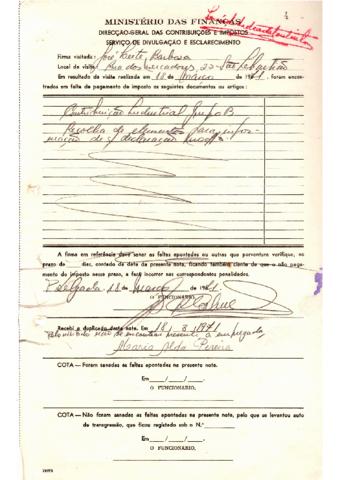 MINISTÉRIO DAS FINANÇAS
DIRECÇÃO-GERAL DAS CONTRIBUIÇÕES E IMPOSTOS
SERVIÇO DE DIVULGAÇÃO E ESCLARECIMENTO
Firma visitada: José Barbosa
Local de visita: Rua dos Mercadores, 22 - São Sebastião
Em resultado da visita realizada em 18 de Março de 1981, foram encon-
trados em falta de pagamento de imposto os seguintes documentos ou artigos:
Contribuição Industrial Grupo B
Recolha de elementos para infor-
mação de s/ declaração
A firma em referência deve sanar as faltas apontadas ou outras que porventura verifique, no
prazo de dias, contado da data da presente nota, ficando também ciente de que o não paga-
mento do imposto nesse prazo, a fará incorrer nas correspondentes penalidades.
P. Delgada, 18 de Março de 1981.
O FUNCIONÁRIO,
Recebi o duplicado desta nota. Em 18/3/1981
Maria Alda Pereira
COTA — Foram sanadas as faltas apontadas na presente nota.
Em / /
O FUNCIONÁRIO,
COTA — Não foram sanadas as faltas apontadas na presente nota, pelo que se levantou auto
de transgressão, que ficou registado sob o N.º
Em / /
O FUNCIONÁRIO,